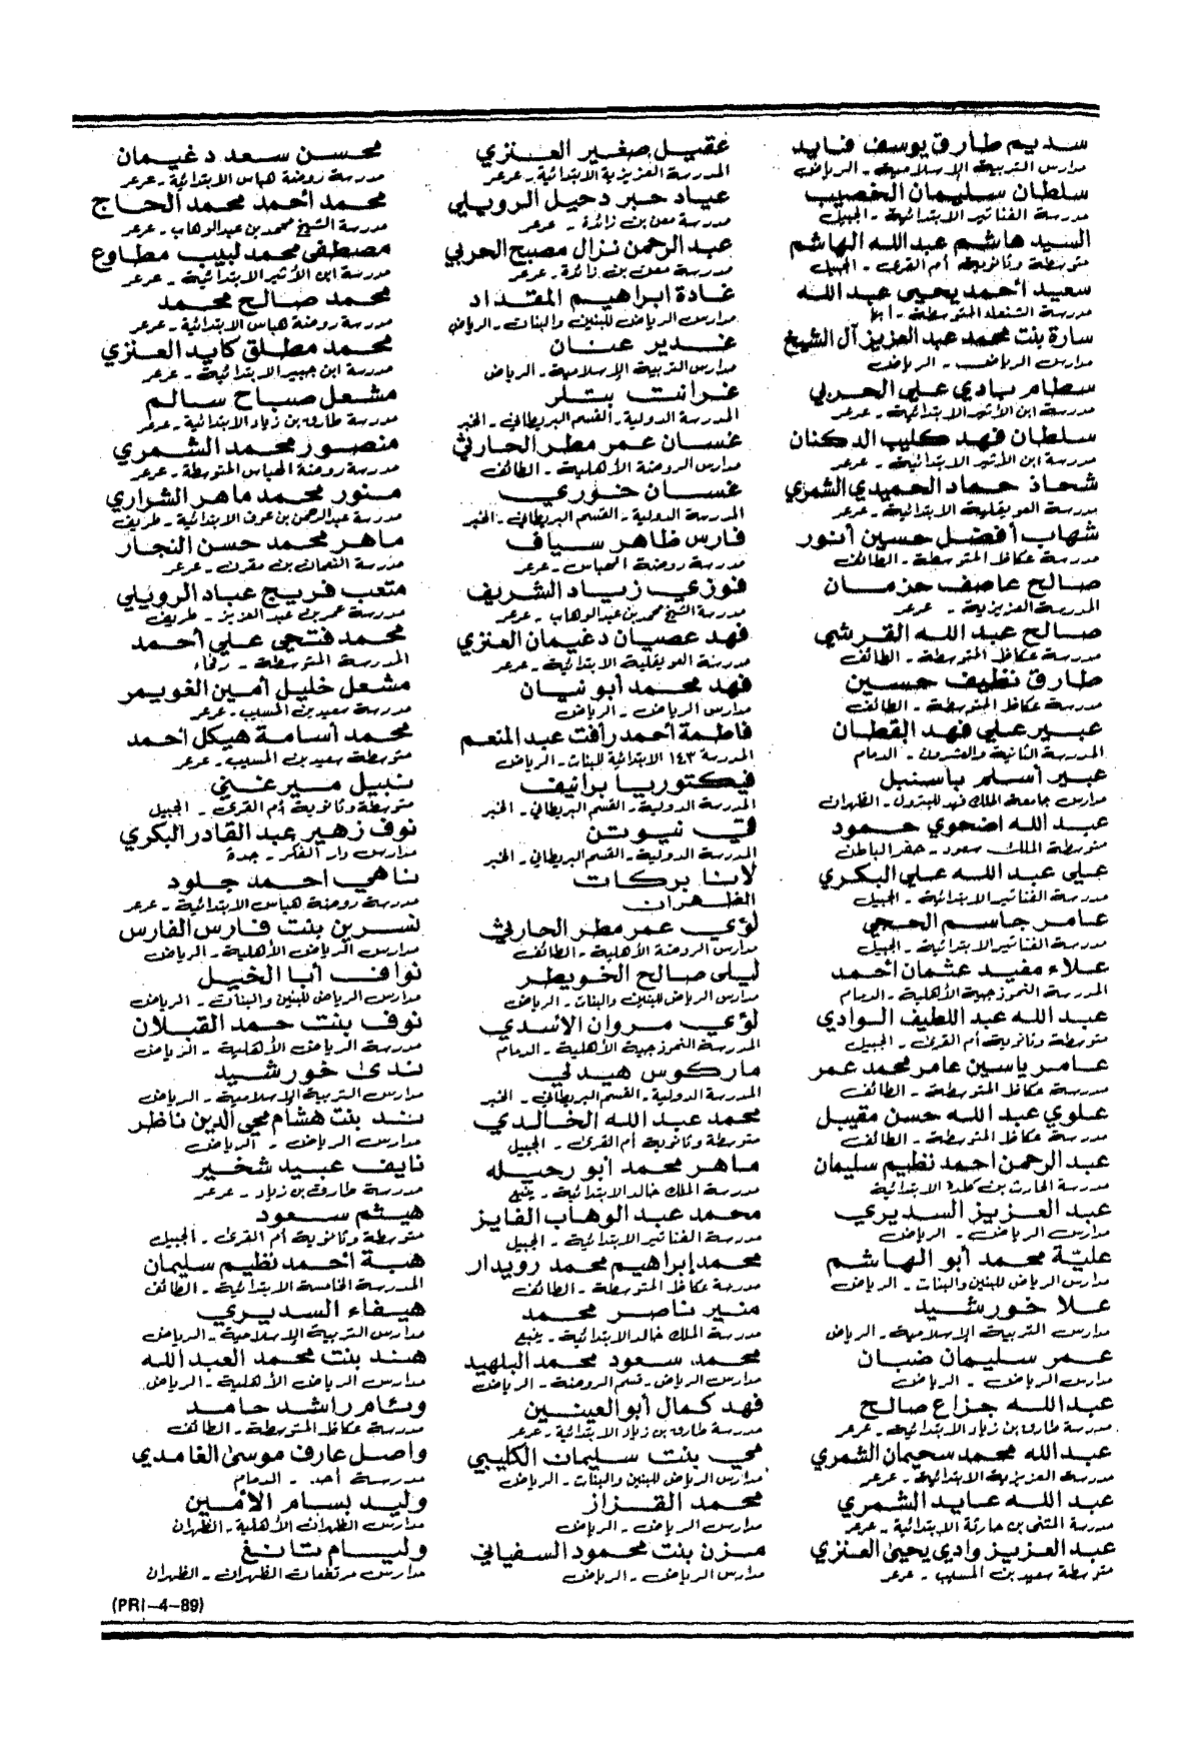 سديم طارق يوسف فنايد
مدارس التربية الإسلامية - الرياض
سلطان سليمان الخصيب
مدرسة الفناتير الابتدائية - الجبيل
السيد هاشم عبد الله الهاشم
متوسطة وثانوية أم القرى - الجبيل
سعيد أحمد يحيى عبد الله
مدرسة الشعلة المتوسطة - أبها
سارة بنت محمد عبد العزيز آل الشيخ
مدارس الرياض - الرياض
سطام بادي علي الحربي
مدرسة ابن الأثير الابتدائية - عرعر
سلطان فهد كليب الدكنان
مدرسة ابن الأثير الابتدائية - عرعر
شحاذ حماد الحميدي الشمري
مدرسة العويقلية الابتدائية - عرعر
شهاب أفضل حسين أنور
مدرسة عكاظ المتوسطة - الطائف
صالح عاصف حزمان
المدرسة العزيزية - عرعر
صالح عبد الله القرشي
مدرسة عكاظ المتوسطة - الطائف
طارق نظيف حسين
مدرسة عكاظ المتوسطة - الطائف
عبير علي فهد القطان
المدرسة الثانية والعشرون - الدمام
عبير أسلم باسنبل
مدارس جامعة الملك فهد للبترول - الظهران
عبد الله اضحوي حمود
متوسطة الملك سعود - حفر الباطن
علي عبد الله علي البكري
مدرسة الفناتير الابتدائية - الجبيل
عامر جاسم الحجي
مدرسة الفناتير الابتدائية - الجبيل
علاء مفيد عثمان أحمد
المدرسة النموذجية الأهلية - الدمام
عبد الله عبد اللطيف الوادي
متوسطة وثانوية أم القرى - الجبيل
عامر ياسين عامر محمد عمر
مدرسة عكاظ المتوسطة - الطائف
علوي عبد الله حسن مقيبل
مدرسة عكاظ المتوسطة - الطائف
عبد الرحمن أحمد نظيم سليمان
مدرسة الحارث بن كلدة الابتدائية
عبد العزيز السديري
مدارس الرياض - الرياض
عليّة محمد أبو الهاشم
مدارس الرياض للبنين والبنات - الرياض
علا خورشيد
مدارس التربية الإسلامية - الرياض
عمر سليمان ضبان
مدارس الرياض - الرياض
عبد الله جزاع صالح
مدرسة طارق بن زياد الابتدائية - عرعر
عبد الله محمد سحيمان الشمري
مدرسة العزيزية الابتدائية - عرعر
عبد الله عايد الشمري
مدرسة المثنى بن حارثة الابتدائية - عرعر
عبد العزيز وادي يحيى العنزي
متوسطة سعيد بن المسيب - عرعر
عقيل صغير العنزي
المدرسة العزيزية الابتدائية - عرعر
عياد حبر دحيل الرويلي
مدرسة معن بن زائدة - عرعر
عبد الرحمن نزال مصبح الحربي
مدرسة معن بن زائدة - عرعر
غادة ابراهيم المقداد
مدارس الرياض للبنين والبنات - الرياض
غدير عنان
مدارس التربية الإسلامية - الرياض
غرانت بتلر
المدرسة الدولية - القسم البريطاني - الخبر
غسان عمر مطر الحارثي
مدارس الروضة الأهلية - الطائف
غسان خوري
المدرسة الدولية - القسم البريطاني - الخبر
فارس ظاهر سياف
مدرسة روضة الهباس - عرعر
فوزي زياد الشريف
مدرسة الشيخ محمد بن عبد الوهاب - عرعر
فهد عصيان دغيمان العنزي
مدرسة العويقلية الابتدائية - عرعر
فهد محمد أبو نيان
مدارس الرياض - الرياض
فاطمة أحمد رأفت عبد المنعم
المدرسة ١٤٣ الابتدائية للبنات - الرياض
فيكتوريا برانيف
المدرسة الدولية - القسم البريطاني - الخبر
في نيوتن
المدرسة الدولية - القسم البريطاني - الخبر
لانا بركات
الظهران
لؤي عمر مطر الحارثي
مدارس الروضة الأهلية - الطائف
ليلى صالح الخويطر
مدارس الرياض للبنين والبنات - الرياض
لؤي مروان الأسدي
المدرسة النموذجية الأهلية - الدمام
ماركوس هيدلي
المدرسة الدولية - القسم البريطاني - الخبر
محمد عبد الله الخالدي
متوسطة وثانوية أم القرى - الجبيل
ماهر محمد أبو رحيله
مدرسة الملك خالد الابتدائية - ينبع
محمد عبد الوهاب الفايز
مدرسة الفناتير الابتدائية - الجبيل
محمد إبراهيم محمد رويدار
مدرسة عكاظ المتوسطة - الطائف
منير ناصر محمد
مدرسة الملك خالد الابتدائية - ينبع
محمد سعود محمد البلهيد
مدارس الرياض - قسم الروضة - الرياض
فهد كمال أبو العينين
مدرسة طارق بن زياد الابتدائية - عرعر
مي بنت سليمان الكليبي
مدارس الرياض للبنين والبنات - الرياض
محمد القزاز
مدارس الرياض - الرياض
مزن بنت محمود السفياني
مدارس الرياض - الرياض
محسن سعد دغيمان
مدرسة روضة هباس الابتدائية - عرعر
محمد أحمد محمد الحاج
مدرسة الشيخ محمد بن عبد الوهاب - عرعر
مصطفى محمد لبيب مطاوع
مدرسة ابن الأثير الابتدائية - عرعر
محمد صالح محمد
مدرسة روضة هباس الابتدائية - عرعر
محمد مطلق كايد العنزي
مدرسة ابن جبير الابتدائية - عرعر
مشعل صباح سالم
مدرسة طارق بن زياد الابتدائية - عرعر
منصور محمد الشمري
مدرسة روضة الهباس المتوسطة - عرعر
منور محمد ماهر الشراري
مدرسة عبد الرحمن بن عوف الابتدائية - طريف
ماهر محمد حسن النجار
مدرسة النعمان بن مقرن - عرعر
متعب فريج عياد الرويلي
مدرسة عمر بن عبد العزيز - طريف
محمد فتحي علي أحمد
المدرسة المتوسطة - رفحاء
مشعل خليل أمين الغويمر
مدرسة سعيد بن المسيب - عرعر
محمد أسامة هيكل أحمد
متوسطة سعيد بن المسيب - عرعر
نبيل ميرغني
متوسطة وثانوية أم القرى - الجبيل
نوف زهير عبد القادر البكري
مدارس دار الفكر - جدة
ناهي أحمد جلود
مدرسة روضة هباس الابتدائية - عرعر
نسرين بنت فارس الفارس
مدارس الرياض الأهلية - الرياض
نواف أبا الخيل
مدارس الرياض للبنين والبنات - الرياض
نوف بنت حمد القبلان
مدرسة الرياض الأهلية - الرياض
ندى خورشيد
مدارس التربية الإسلامية - الرياض
ند بنت هشام محي الدين ناظر
مدارس الرياض - الرياض
نايف عبيد شخير
مدرسة طارق بن زياد - عرعر
هيثم سعود
متوسطة وثانوية أم القرى - الجبيل
هبة أحمد نظيم سليمان
المدرسة الخامسة الابتدائية - الطائف
هيفاء السديري
مدارس التربية الإسلامية - الرياض
هند بنت محمد العبد الله
مدارس الرياض الأهلية - الرياض
وئام راشد حامد
مدرسة عكاظ المتوسطة - الطائف
واصل عارف موسى الغامدي
مدرسة أحد - الدمام
وليد بسام الأمين
مدارس الظهران الأهلية - الظهران
وليام تانغ
مدارس مرتفعات الظهران - الظهران
(PRI-4-89)